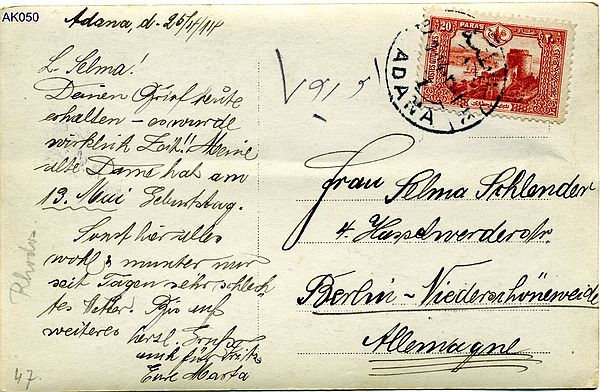 AK050
Adana, d. 25/4/14
L. Selma!
Deinen Brief heute
erhalten – es wurde
wirklich Zeit!! Meine
alte Dame hat am
19. Mai Geburtstag.
Sonst hier alles
wohl & munter nur
seit Tagen sehr schlech-
tes Wetter. Bis auf
weiteres herzl. Grüße
auch für Fritz
Eure Marta
Rhodos
47
20 PARAS 20
ADANA
Frau Selma Schlender
4. Hasselwerderstr.
Berlin-Niederschöneweide
Allemagne